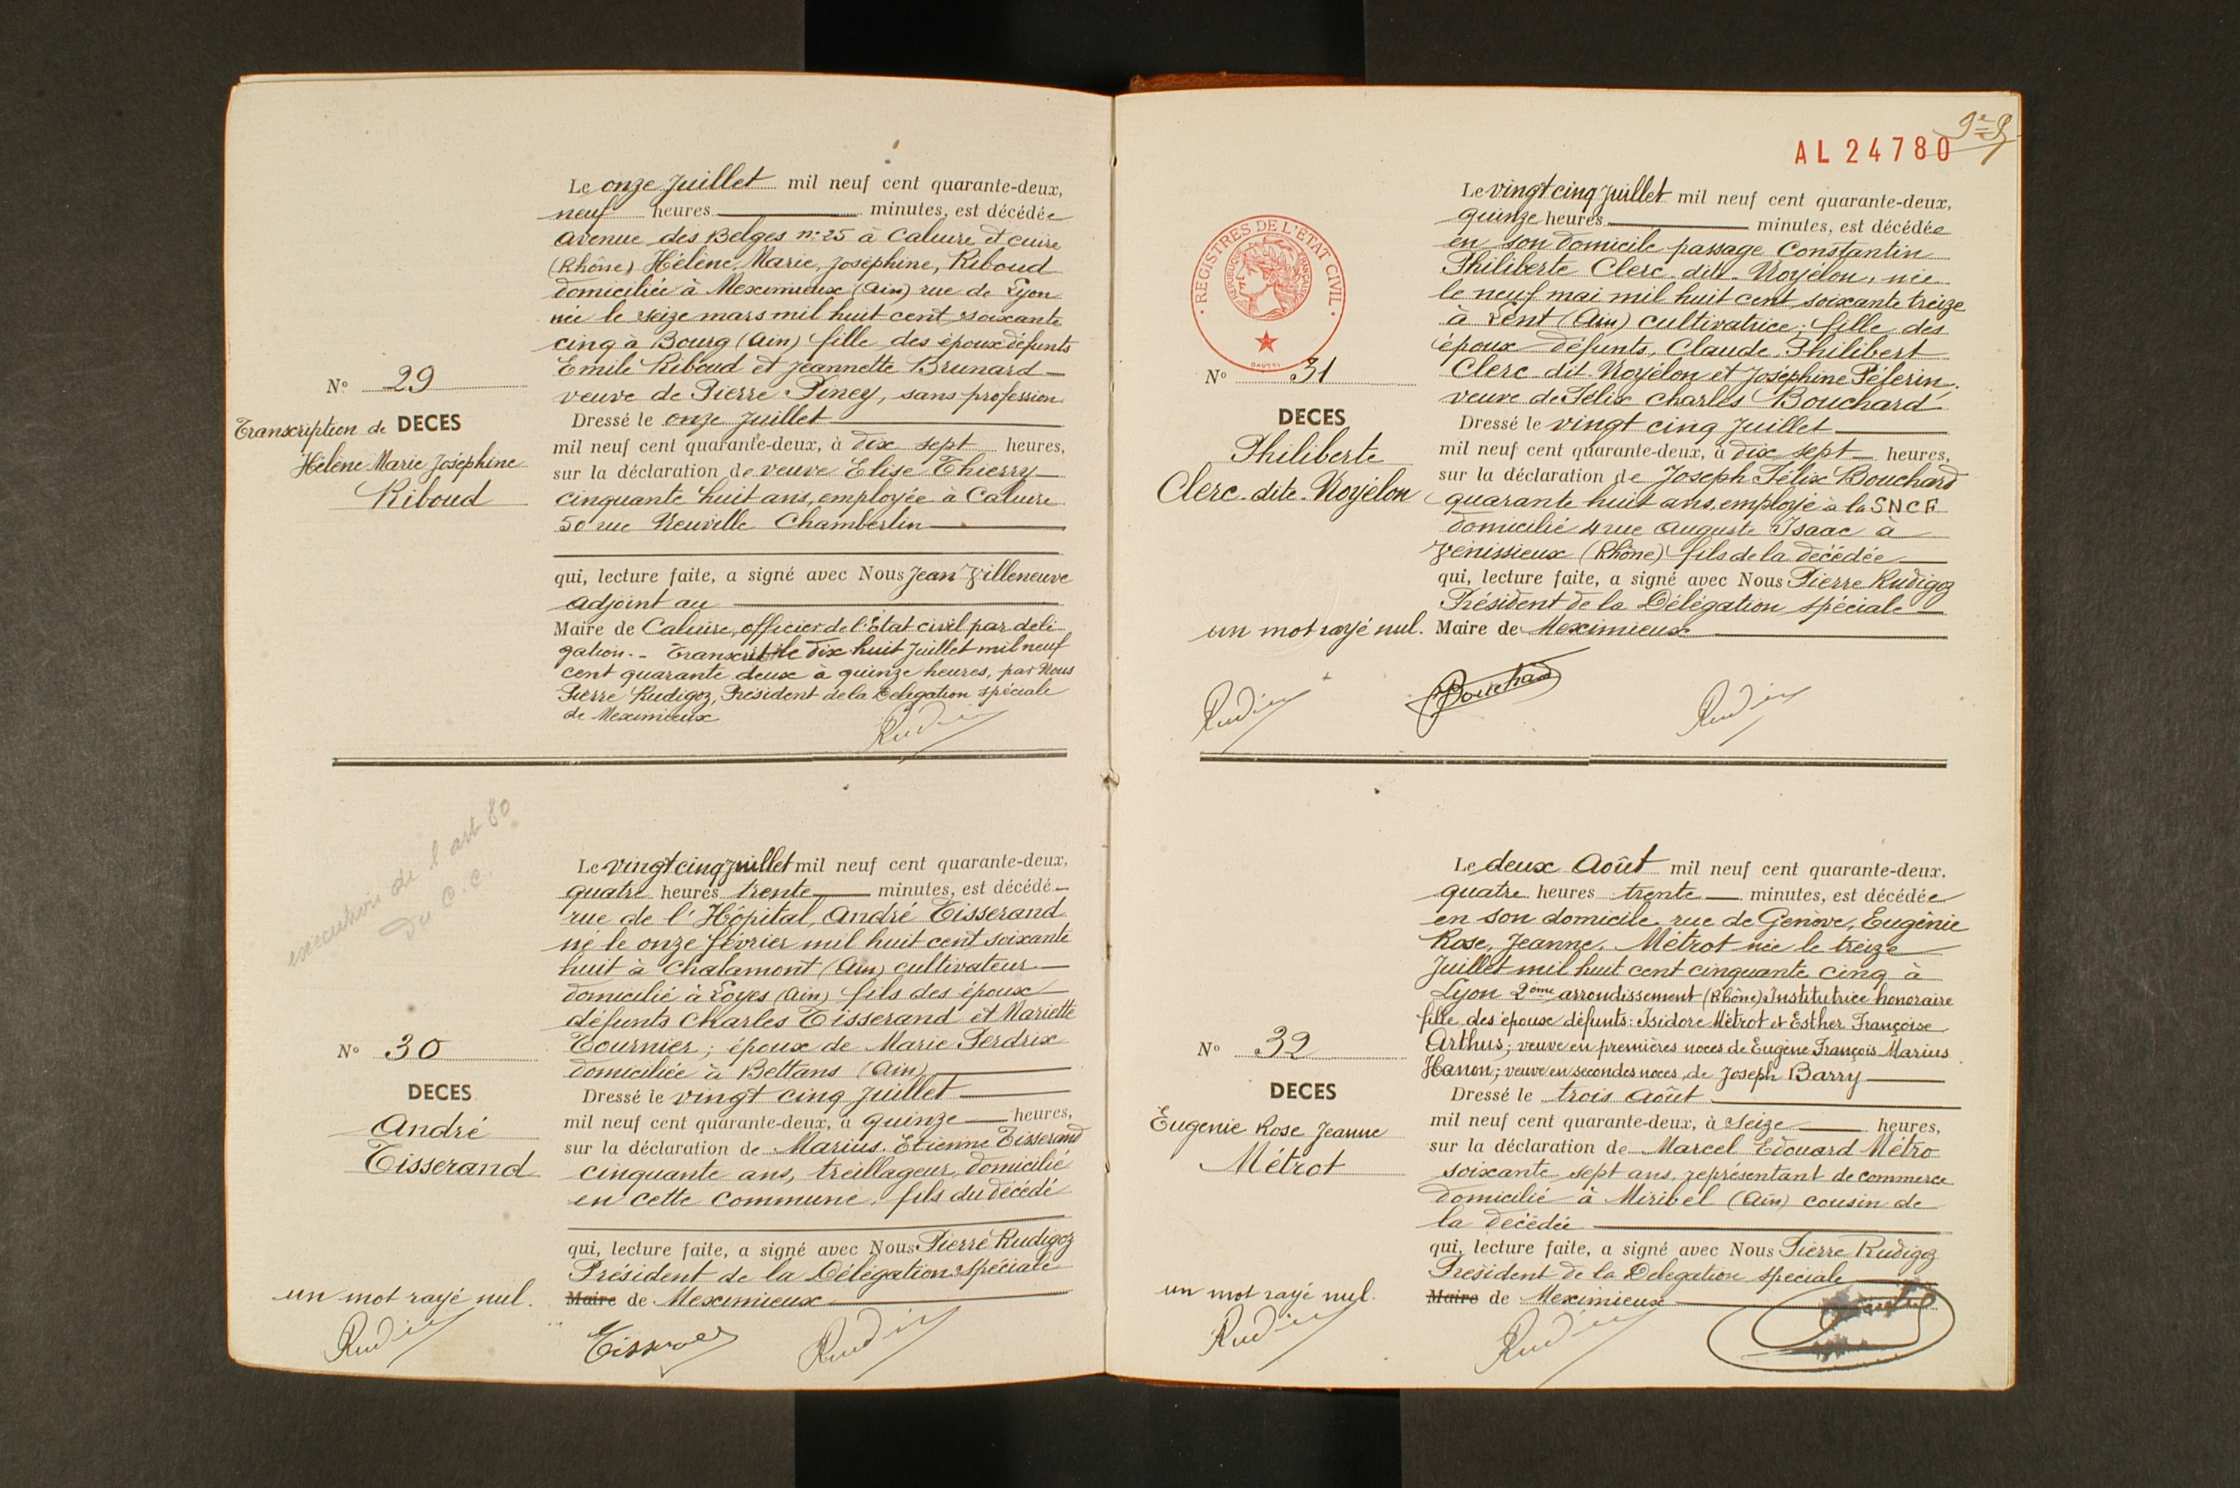 Le onze Juillet mil neuf cent quarante-deux,
neuf heures minutes, est décédée
avenue des Belges n: 25 à Caluire et cuire
(Rhône) Hélène, Marie, Joséphine, Riboud
domiciliée à Meximieux (Ain) rue de Lyon
née le seize mars mil huit cent soixante
cinq à Bourg (Ain) fille des époux défunts
Emile Riboud et Jeannette Brunard
veuve de Pierre Piney, sans profession
Nº 29
Transcription de DECES
Hélène Marie Joséphine
Riboud
Dressé le onze Juillet
mil neuf cent quarante-deux, à dix sept heures,
sur la déclaration de veuve Elise Thierry
cinquante huit ans, employée à Caluire
50 rue Neuville Chamberlin
qui, lecture faite, a signé avec Nous Jean Villeneuve
adjoint au
Maire de Caluire, officier de l'Etat civil par délé
gation.- Transcrit le dix huit Juillet mil neuf
cent quarante deux à quinze heures, par Nous
Pierre Rudigoz, Président de la Délégation spéciale
de Meximieux
exécution de l art 80
du C.C.
Le vingt cinq Juillet mil neuf cent quarante-deux,
quatre heures trente minutes, est décédé
rue de l'Hôpital, André Tisserand
né le onze février mil huit cent soixante
huit à Chalamont (Ain) cultivateur
domicilié à Loyes (Ain) fils des époux
défunts Charles Tisserand et Mariette
Tournier; époux de Marie Perdrix
domiciliée à Bettans (Ain)
Nº 30
DECES
André
Tisserand
Dressé le vingt cinq Juillet
mil neuf cent quarante-deux, à quinze heures,
sur la déclaration de Marius, Etienne Tisserand
cinquante ans, treillageur, domicilié
en cette commune, fils du décédé
qui, lecture faite, a signé avec Nous Pierre Rudigoz
Président de la Délégation spéciale
Maire de Meximieux
un mot rayé nul.
AL 24780
REGISTRES DE L'ETAT CIVIL
REPUBLIQUE FRANÇAISE
Le vingt cinq Juillet mil neuf cent quarante-deux,
quinze heures minutes, est décédée
en son domicile passage Constantin
Philiberte Clerc dite Noyélon, née
le neuf mai mil huit cent soixante treize
à Lent (Ain) cultivatrice; fille des
époux défunts, Claude, Philibert
Clerc dit Noyélon et Joséphine Pélerin,
veuve de Félix Charles Bouchard
Nº 31
DECES
Philiberte
Clerc dite Noyélon
Dressé le vingt cinq Juillet
mil neuf cent quarante-deux, à dix sept heures,
sur la déclaration de Joseph Félix Bouchard
quarante huit ans, employé à la SNCF
domicilié 4 rue Auguste Isaac à
Vénissieux (Rhône) fils de la décédée
qui, lecture faite, a signé avec Nous Pierre Rudigoz
Président de la Délégation spéciale
un mot rayé nul. Maire de Meximieux
Bouchard
Le deux Août mil neuf cent quarante-deux.
quatre heures trente minutes, est décédée
en son domicile rue de Genève, Eugénie
Rose, Jeanne, Métrot née le treize
Juillet mil huit cent cinquante cinq à
Lyon 2ème arrondissement (Rhône) Institutrice honoraire
fille des époux défunts: Isidore Métrot et Esther Françoise
Arthus; veuve en premières noces de Eugène François Marius
Hanon; veuve en secondes noces, de Joseph Barry
Nº 32
DECES
Eugénie Rose Jeanne
Métrot
Dressé le trois Août
mil neuf cent quarante-deux, à Seize heures,
sur la déclaration de Marcel Edouard Métro
soixante sept ans, représentant de commerce
domicilié à Miribel (Ain) cousin de
la décédée
qui, lecture faite, a signé avec Nous Pierre Rudigoz
Président de la Délégation spéciale
Maire de Meximieux
un mot rayé nul.